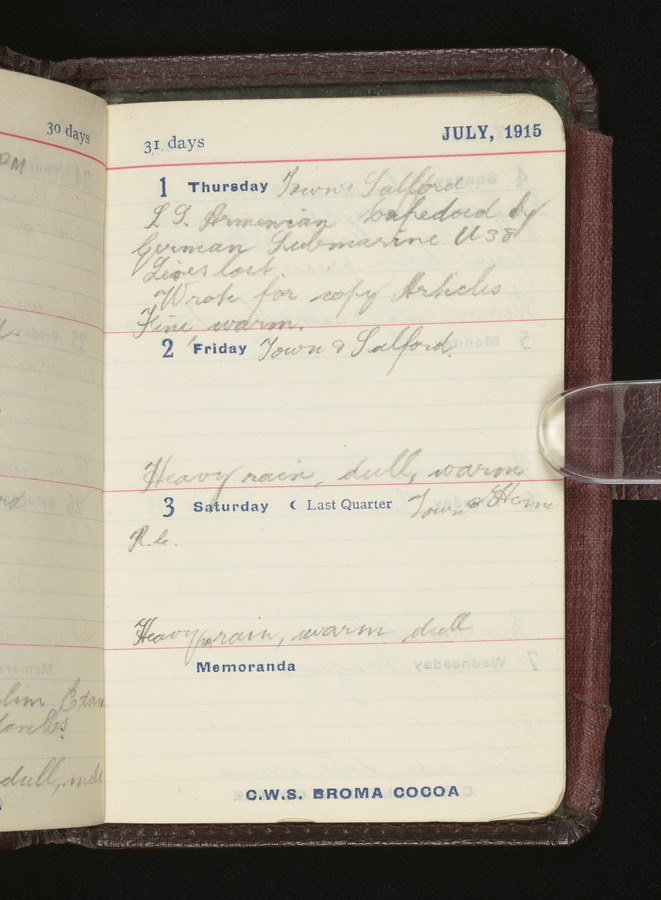 30 days
31 days
JULY, 1915
1 Thursday Town & Salford
L S. Armenian topedoed by
German Submarine U38
Lives lost.
Wrote for copy Articles
Fine, warm.
2 Friday Town & Salford.
Heavy rain, dull, warm
3 Saturday ☾ Last Quarter Town & Home
R.C.
Heavy rain, warm dull
Memoranda
dull, mild
C.W.S. BROMA COCOA